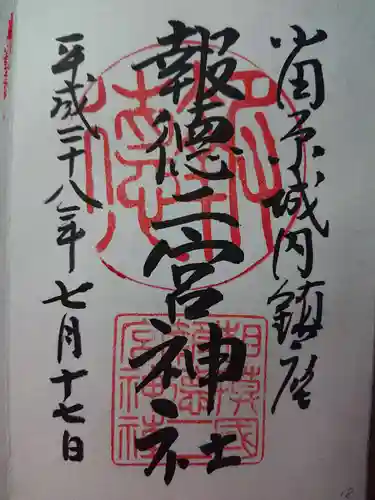 小田原城内鎮座
報徳二宮神社
平成二十八年七月十七日
報徳
相模國
報徳二
宮神社